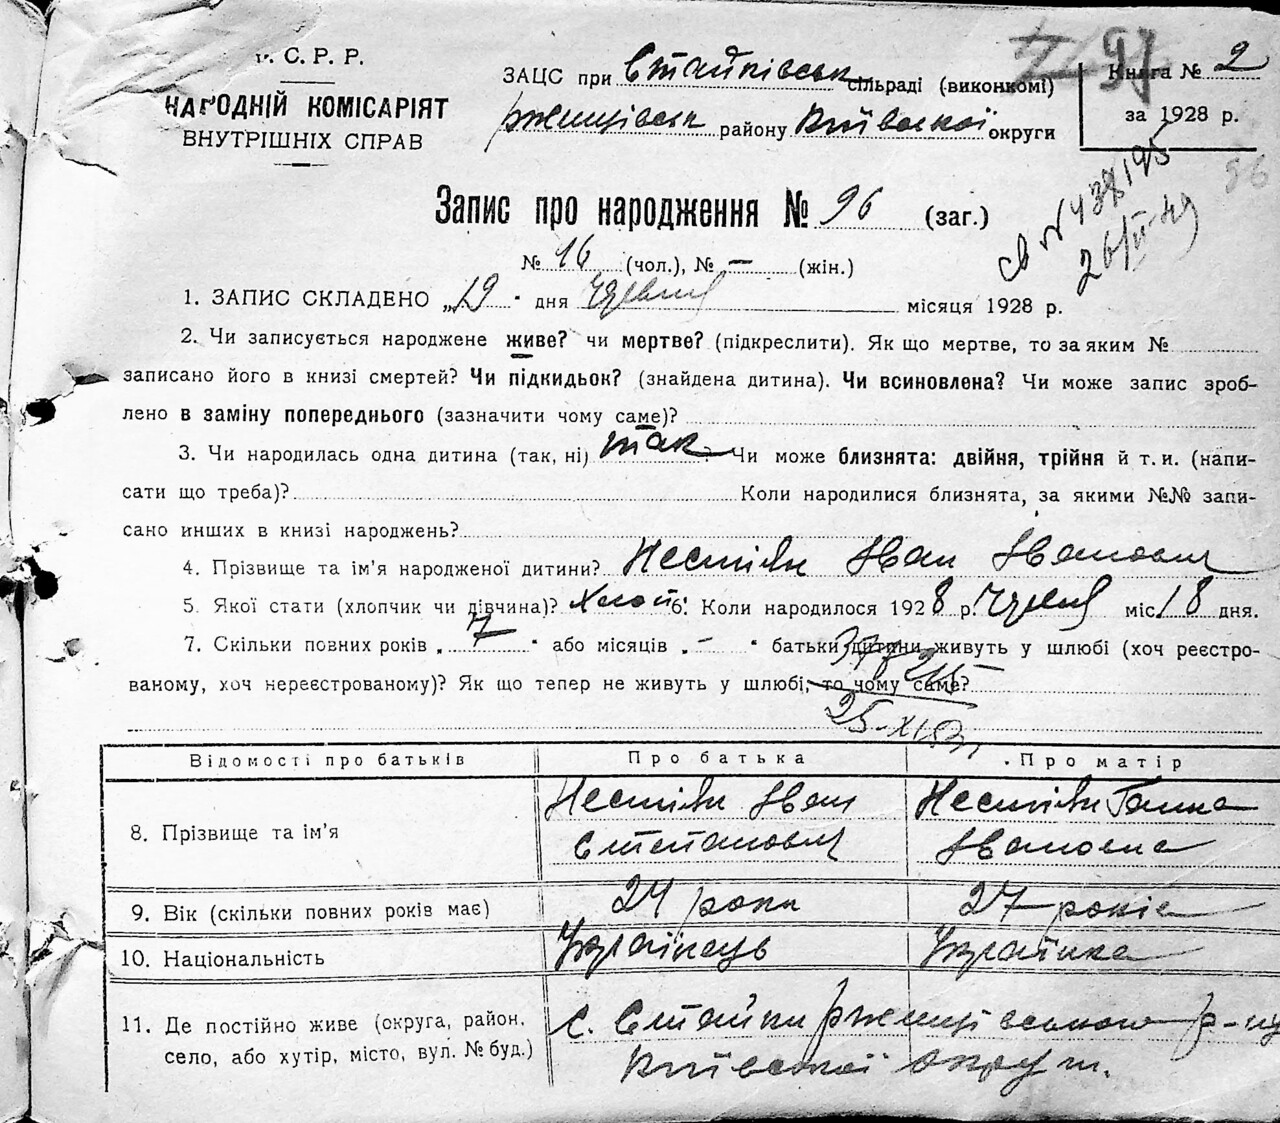 С. Р. Р.
НАРОДНІЙ КОМІСАРІЯТ
ВНУТРІШНІХ СПРАВ
ЗАЦС при Стайківськ сільраді (виконкомі)
Ржищівськ району Київської округи
97
Книга № 2
за 1928 р.
96
Запис про народження № 96 (заг.)
№ 16 (чол.), № — (жін.)
св № 438195
26/VI-49
1. ЗАПИС СКЛАДЕНО „19" дня Червня місяця 1928 р.
2. Чи записується народжене живе? чи мертве? (підкреслити). Як що мертве, то за яким №
записано його в книзі смертей? Чи підкидьок? (знайдена дитина). Чи всиновлена? Чи може запис зроб-
лено в заміну попереднього (зазначити чому саме)?
3. Чи народилась одна дитина (так, ні) так? Чи може близнята: двійня, трійня й т. и. (напи-
сати що треба)? Коли народилися близнята, за якими №№ запи-
сано инших в книзі народжень?
4. Прізвище та ім'я народженої дитини? Нестіян Іван Іванович
5. Якої стати (хлопчик чи дівчина)? Хлоп б. Коли народилося 1928 р. Червня міс. 18 дня.
7. Скільки повних років „7" або місяців „-" батьки дитини живуть у шлюбі (хоч реєстро-
ваному, хоч нереєстрованому)? Як що тепер не живуть у шлюбі, то чому саме?
Відомості про батьків Про батька Про матір
8. Прізвище та ім'я Нестіян Іван Степанович Нестіян Ганна Івановна
9. Вік (скільки повних років має) 24 роки 27 років
10. Національність Українець Українка
11. Де постійно живе (округа, район, село, або хутір, місто, вул. № буд.) с. Стайки Ржищівського р-ну
Київської округи.